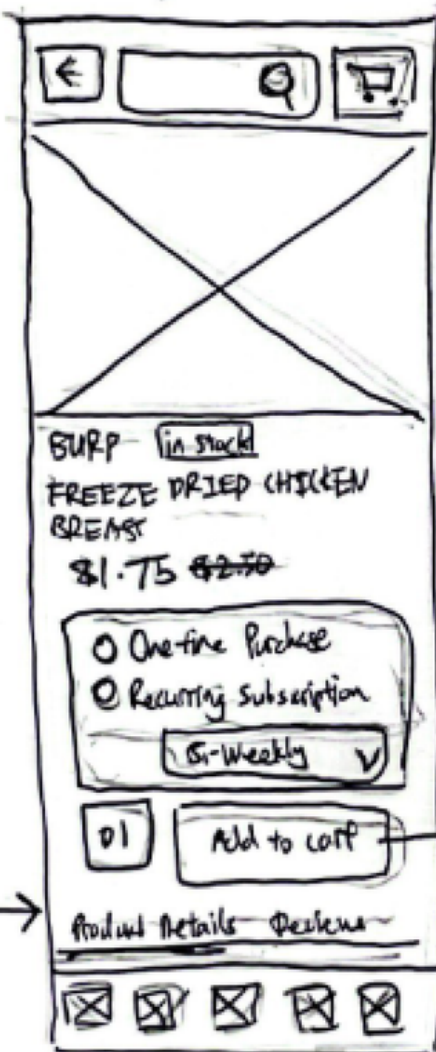 BURP in stock
FREEZE DRIED CHICKEN
BREAST
$1.75 $2.50
One-time Purchase
Recurring Subscription
Bi-Weekly
01 Add to cart
Product Details Reviews